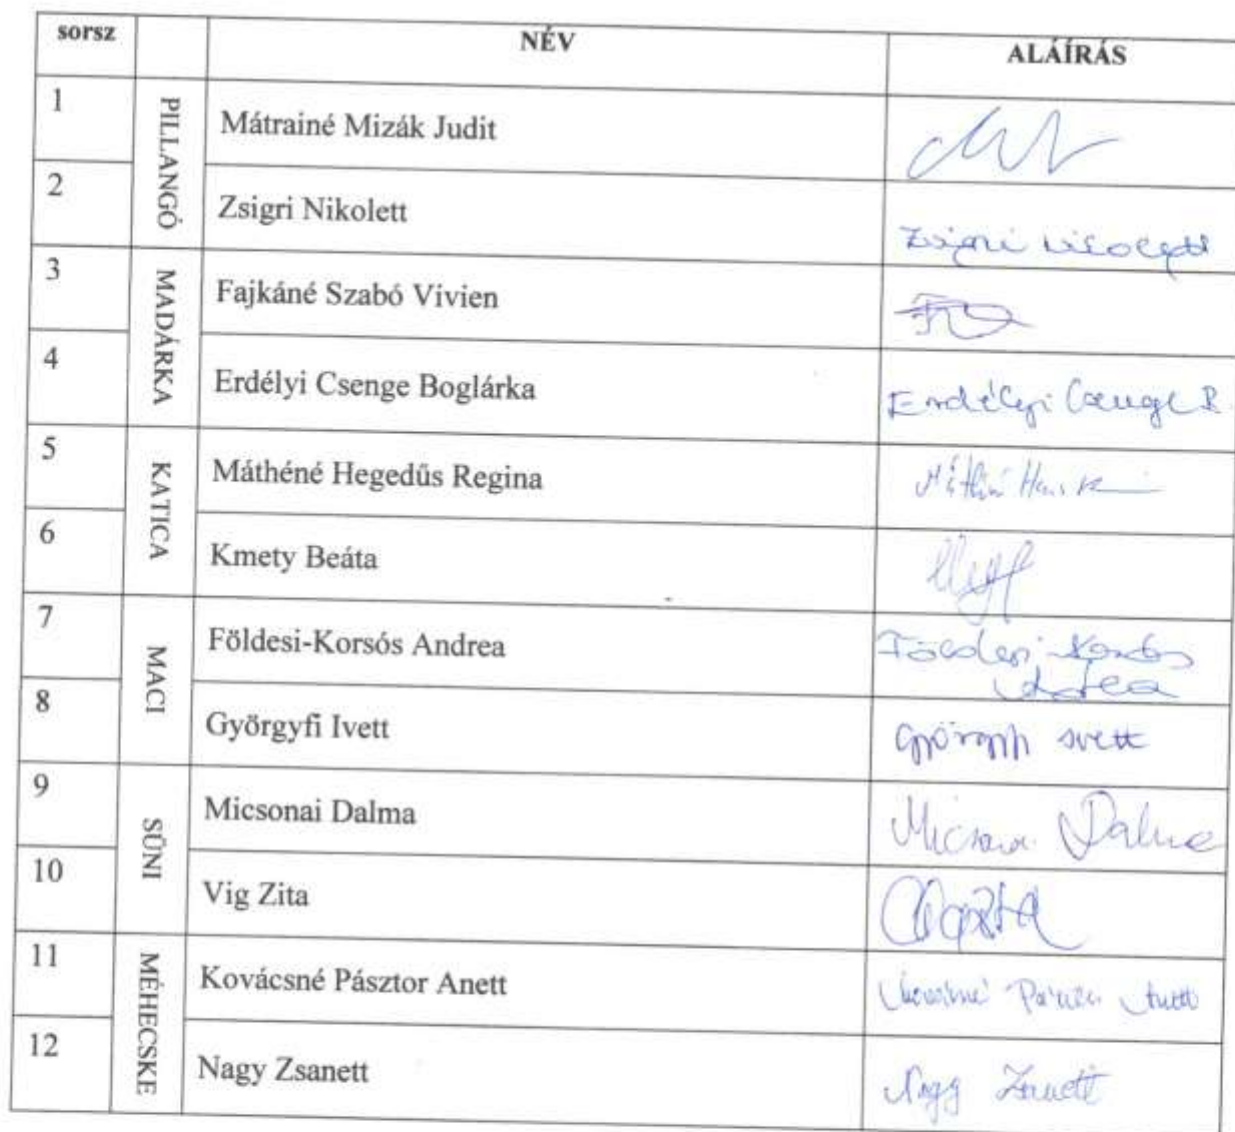 sorsz NÉV ALÁÍRÁS
PILLANGÓ
1 Mátrainé Mizák Judit
2 Zsigri Nikolett Zsigri Nikolett
MADÁRKA
3 Fajkáné Szabó Vivien
4 Erdélyi Csenge Boglárka Erdélyi Csenge B.
KATICA
5 Máthéné Hegedűs Regina
6 Kmety Beáta
MACI
7 Földesi-Korsós Andrea Földesi-Korsós
Andrea
8 Györgyfi Ivett Györgyfi Ivett
SÜNI
9 Micsonai Dalma Micsonai Dalma
10 Vig Zita
MÉHECSKE
11 Kovácsné Pásztor Anett Kovácsné Pásztor Anett
12 Nagy Zsanett Nagy Zsanett